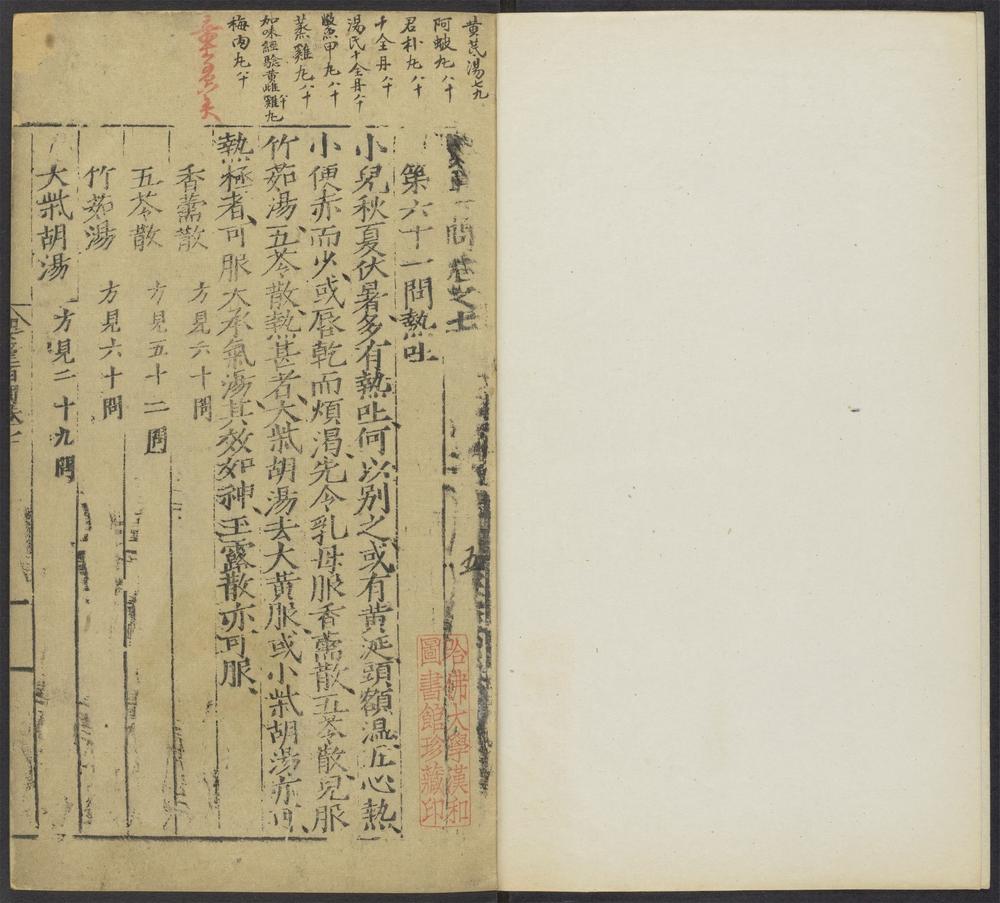 黄芪湯七九
阿蛟丸八十
君朴丸八十
十全丹八十
湯氏十全丹八十
鱉甲丸八十
蒸雞丸八十
加味經驗黄雌雞丸八十
梅肉丸八十
問卷之十
第六十一問熱吐
小兒秋夏伏暑多有熱吐何以別之或有黄涎頭額温五心熱
小便赤而少或唇乾而煩渇先令乳母服香薷散五苓散兒服
竹茹湯五苓散熱甚者大柴胡湯去大黄服或小柴胡湯亦可
熱極者可服大承氣湯其效如神玉露散亦可服
香薷散 方見六十問
五苓散 方見五十二問
竹茹湯 方見六十問
大柴胡湯 方見二十九問
哈佛大學漢和
圖書館珍藏印